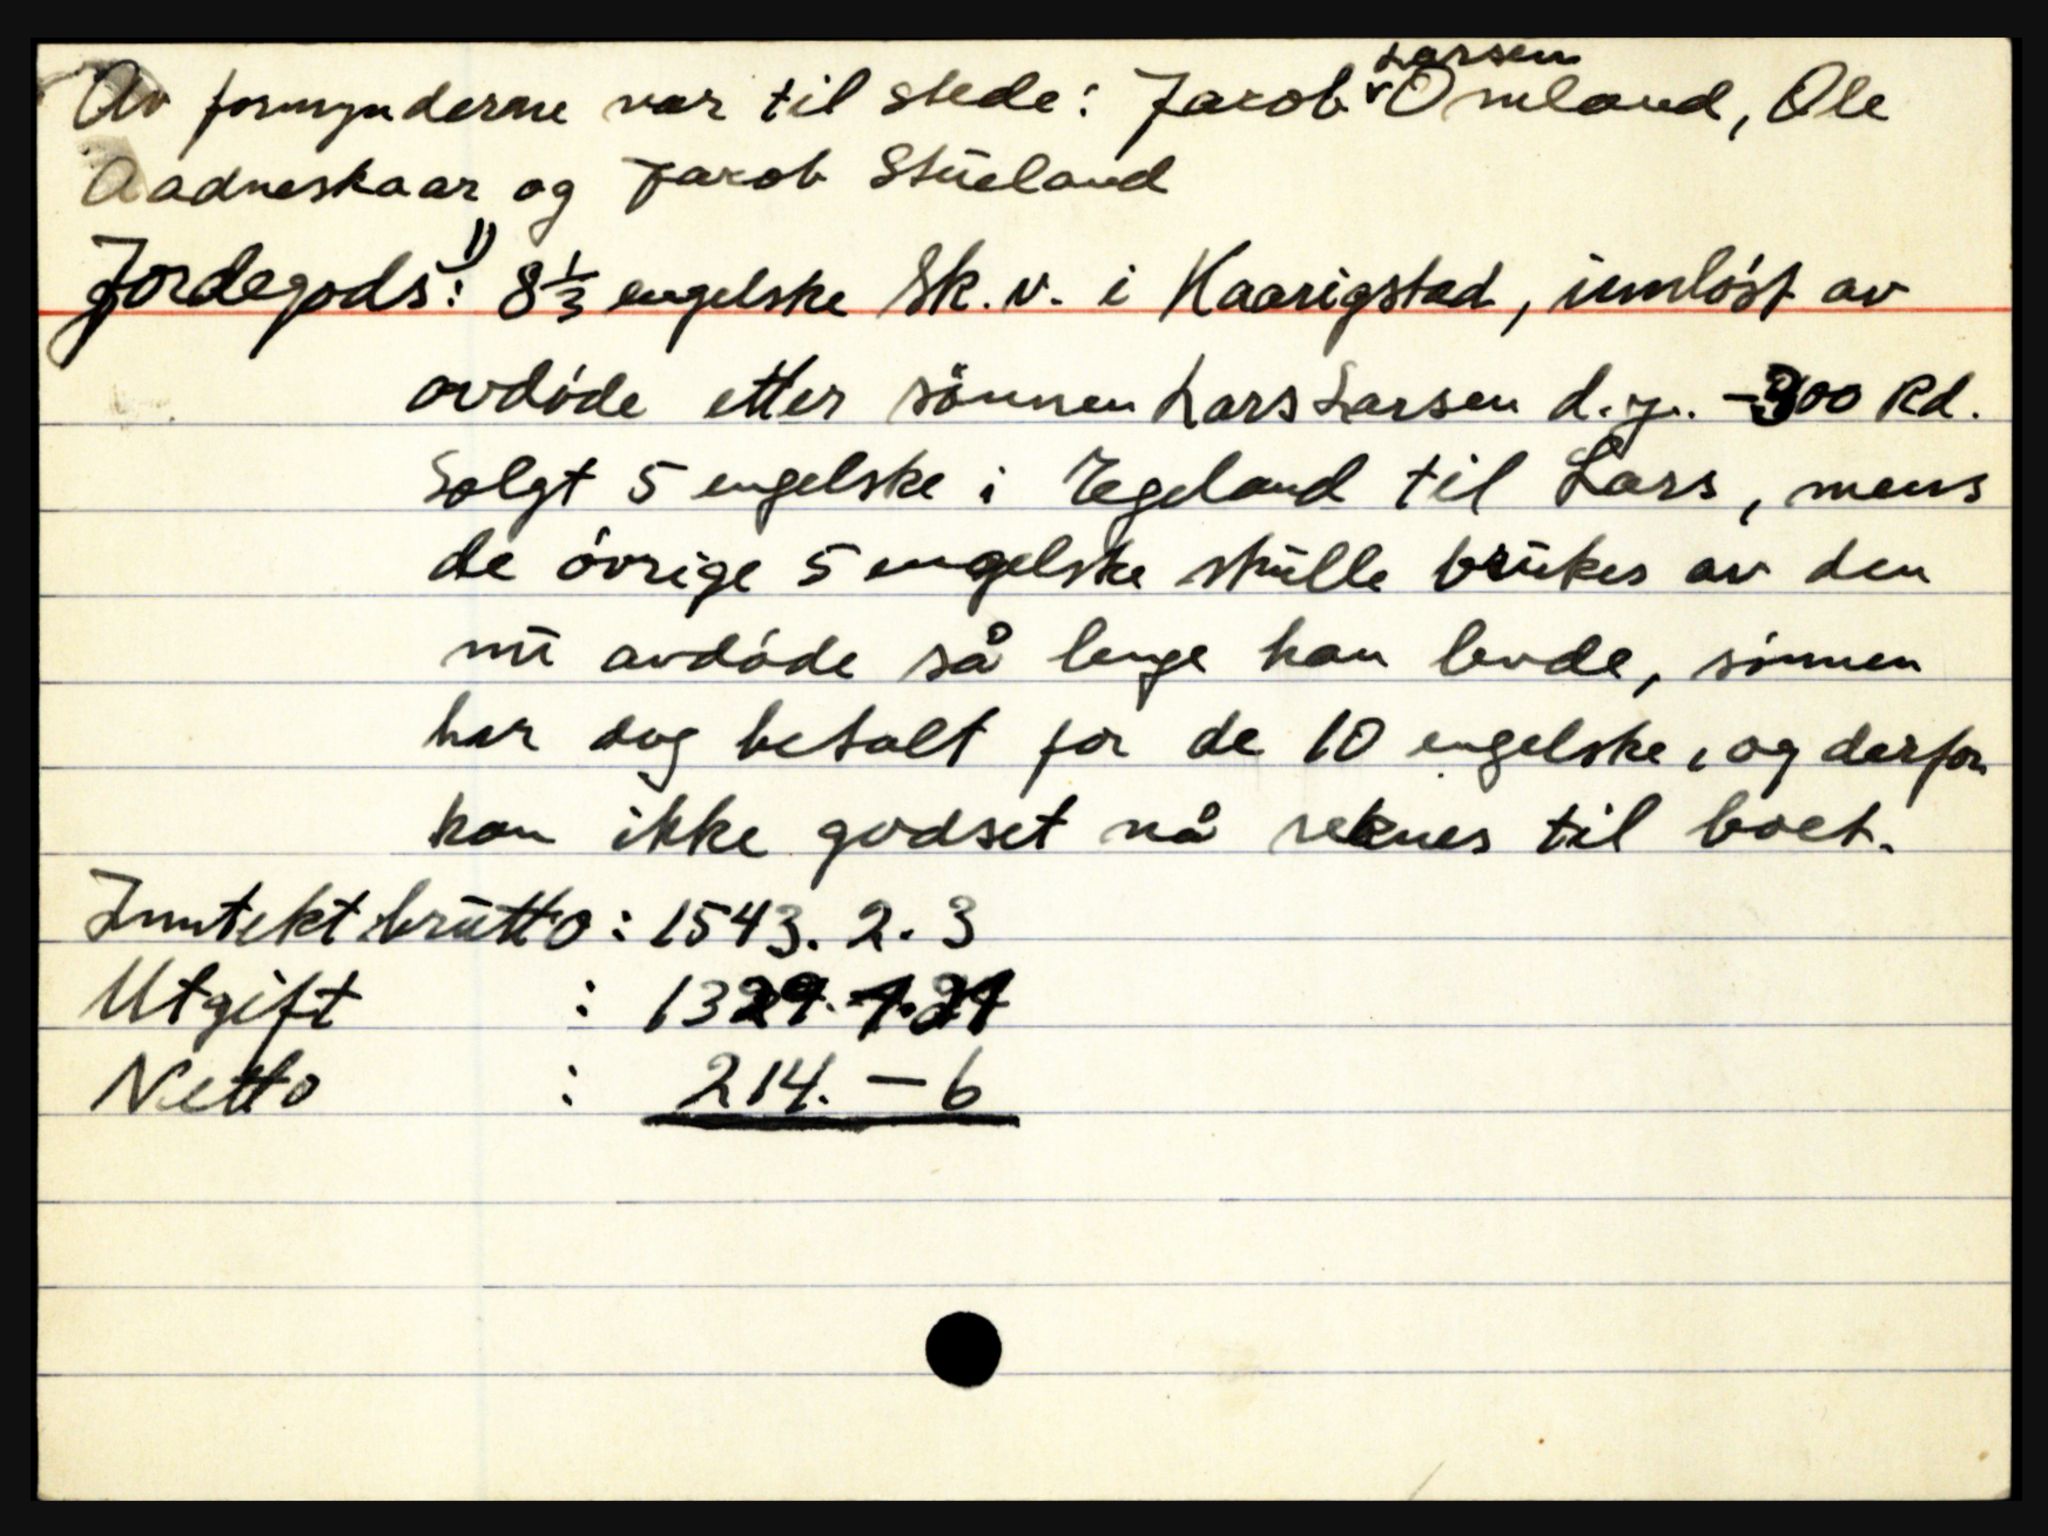 Av formynderne var til stede: Jakob Larsen Omland, Ole
Aadneskaar og Jakob Stueland
Jordegods:¹⁾ 8 1/3 engelske Sk. v. i Haarigstad, innløst av
avdøde etter sønnen Lars Larsen d.y. - 300 Rd.
Solgt 5 engelske i Egeland til Lars, mens
de øvrige 5 engelske skulle brukes av den
nu avdøde så lenge han levde, sønnen
har dog betalt for de 10 engelske, og derfor
kan ikke godset nå reknes til boet.
Inntekt brutto: 1543. 2. 3
Utgift : 1329. 1. 21
Netto : 214. – 6